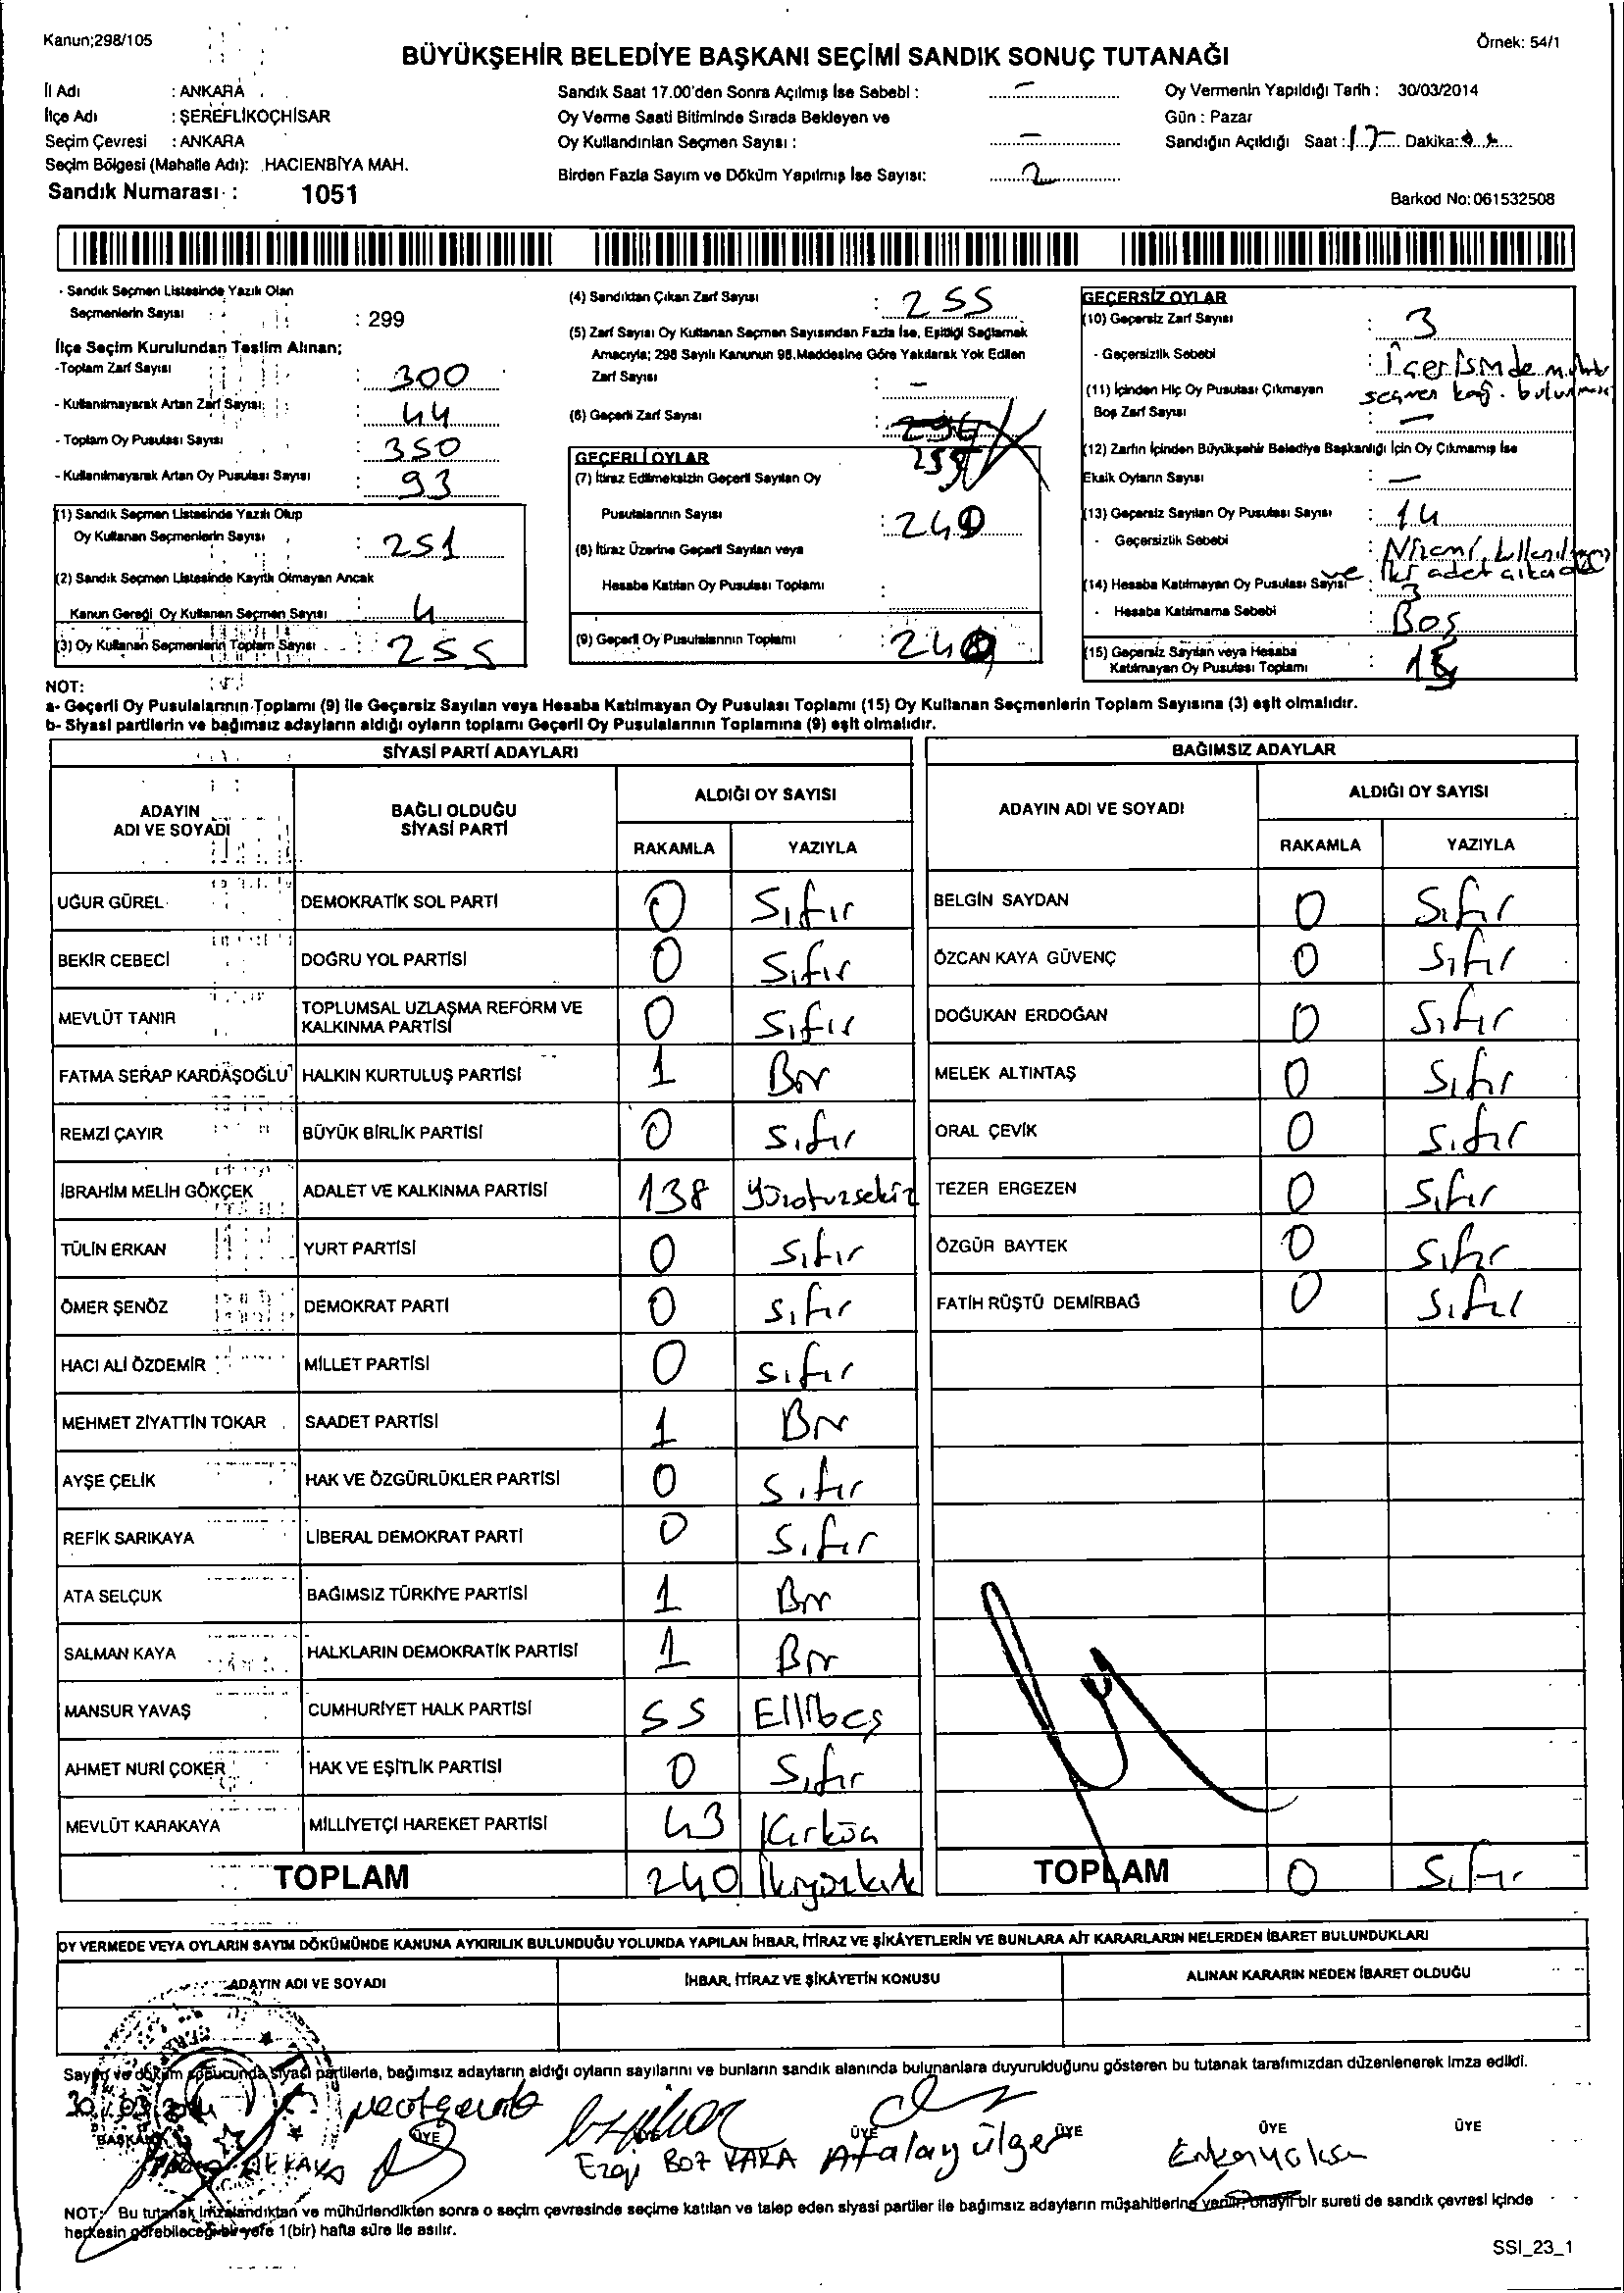 Kanun;298/105
Örnek: 54/1
BÜYÜKŞEHİR BELEDİYE BAŞKANI SEÇİMİ SANDIK SONUÇ TUTANAĞI
İl Adı : ANKARA
İlçe Adı : ŞEREFLİKOÇHİSAR
Seçim Çevresi : ANKARA
Seçim Bölgesi (Mahalle Adı): HACIENBİYA MAH.
Sandık Numarası : 1051
Sandık Saat 17.00'den Sonra Açılmış İse Sebebi : –
Oy Verme Saati Bitiminde Sırada Bekleyen ve
Oy Kullandırılan Seçmen Sayısı : –
Birden Fazla Sayım ve Döküm Yapılmış İse Sayısı: 2
Oy Vermenin Yapıldığı Tarih : 30/03/2014
Gün : Pazar
Sandığın Açıldığı Saat : 17 Dakika:
Barkod No: 061532508
- Sandık Seçmen Listesinde Yazılı Olan
Seçmenlerin Sayısı : 299
İlçe Seçim Kurulundan Teslim Alınan;
-Toplam Zarf Sayısı : 300
- Kullanılmayarak Artan Zarf Sayısı : 44
- Toplam Oy Pusulası Sayısı : 350
- Kullanılmayarak Artan Oy Pusulası Sayısı : 93
(1) Sandık Seçmen Listesinde Yazılı Olup
Oy Kullanan Seçmenlerin Sayısı : 251
(2) Sandık Seçmen Listesinde Kayıtlı Olmayan Ancak
Kanun Gereği Oy Kullanan Seçmen Sayısı : 4
(3) Oy Kullanan Seçmenlerin Toplam Sayısı : 255
(4) Sandıktan Çıkan Zarf Sayısı : 255
(5) Zarf Sayısı Oy Kullanan Seçmen Sayısından Fazla İse, Eşitliği Sağlamak
Amacıyla; 298 Sayılı Kanunun 98.Maddesine Göre Yakılarak Yok Edilen
Zarf Sayısı : –
(6) Geçerli Zarf Sayısı :
GEÇERLİ OYLAR
(7) İtiraz Edilmeksizin Geçerli Sayılan Oy
Pusulalarının Sayısı : 240
(8) İtiraz Üzerine Geçerli Sayılan veya
Hesaba Katılan Oy Pusulası Toplamı :
(9) Geçerli Oy Pusulalarının Toplamı : 240
GEÇERSİZ OYLAR
(10) Geçersiz Zarf Sayısı : 3
- Geçersizlik Sebebi : İçerisinde
(11) İçinden Hiç Oy Pusulası Çıkmayan
Boş Zarf Sayısı : –
(12) Zarfın İçinden Büyükşehir Belediye Başkanlığı İçin Oy Çıkmamış İse
Eksik Oyların Sayısı : –
(13) Geçersiz Sayılan Oy Pusulası Sayısı : 14
- Geçersizlik Sebebi :
(14) Hesaba Katılmayan Oy Pusulası Sayısı :
- Hesaba Katılmama Sebebi : Boş
(15) Geçersiz Sayılan veya Hesaba
Katılmayan Oy Pusulası Toplamı : 15
NOT:
a- Geçerli Oy Pusulalarının Toplamı (9) ile Geçersiz Sayılan veya Hesaba Katılmayan Oy Pusulası Toplamı (15) Oy Kullanan Seçmenlerin Toplam Sayısına (3) eşit olmalıdır.
b- Siyasi partilerin ve bağımsız adayların aldığı oyların toplamı Geçerli Oy Pusulalarının Toplamına (9) eşit olmalıdır.
SİYASİ PARTİ ADAYLARI
ADAYIN ADI VE SOYADI BAĞLI OLDUĞU SİYASİ PARTİ ALDIĞI OY SAYISI
RAKAMLA YAZIYLA
UĞUR GÜREL DEMOKRATİK SOL PARTİ 0 Sıfır
BEKİR CEBECİ DOĞRU YOL PARTİSİ 0 Sıfır
MEVLÜT TANIR TOPLUMSAL UZLAŞMA REFORM VE KALKINMA PARTİSİ 0 Sıfır
FATMA SERAP KARDAŞOĞLU HALKIN KURTULUŞ PARTİSİ 1 Bir
REMZİ ÇAYIR BÜYÜK BİRLİK PARTİSİ 0 Sıfır
İBRAHİM MELİH GÖKÇEK ADALET VE KALKINMA PARTİSİ 138 Yüzotuzsekiz
TÜLİN ERKAN YURT PARTİSİ 0 Sıfır
ÖMER ŞENÖZ DEMOKRAT PARTİ 0 Sıfır
HACI ALİ ÖZDEMİR MİLLET PARTİSİ 0 Sıfır
MEHMET ZİYATTİN TOKAR SAADET PARTİSİ 1 Bir
AYŞE ÇELİK HAK VE ÖZGÜRLÜKLER PARTİSİ 0 Sıfır
REFİK SARIKAYA LİBERAL DEMOKRAT PARTİ 0 Sıfır
ATA SELÇUK BAĞIMSIZ TÜRKİYE PARTİSİ 1 Bir
SALMAN KAYA HALKLARIN DEMOKRATİK PARTİSİ 1 Bir
MANSUR YAVAŞ CUMHURİYET HALK PARTİSİ 55 Ellibeş
AHMET NURİ ÇOKER HAK VE EŞİTLİK PARTİSİ 0 Sıfır
MEVLÜT KARAKAYA MİLLİYETÇİ HAREKET PARTİSİ 43 Kırküç
TOPLAM 240 İkiyüzkırk
BAĞIMSIZ ADAYLAR
ADAYIN ADI VE SOYADI ALDIĞI OY SAYISI
RAKAMLA YAZIYLA
BELGİN SAYDAN 0 Sıfır
ÖZCAN KAYA GÜVENÇ 0 Sıfır
DOĞUKAN ERDOĞAN 0 Sıfır
MELEK ALTINTAŞ 0 Sıfır
ORAL ÇEVİK 0 Sıfır
TEZER ERGEZEN 0 Sıfır
ÖZGÜR BAYTEK 0 Sıfır
FATİH RÜŞTÜ DEMİRBAĞ 0 Sıfır
TOPLAM 0 Sıfır
OY VERMEDE VEYA OYLARIN SAYIM DÖKÜMÜNDE KANUNA AYKIRILIK BULUNDUĞU YOLUNDA YAPILAN İHBAR, İTİRAZ VE ŞİKÂYETLERİN VE BUNLARA AİT KARARLARIN NELERDEN İBARET BULUNDUKLARI
ADAYIN ADI VE SOYADI İHBAR, İTİRAZ VE ŞİKÂYETİN KONUSU ALINAN KARARIN NEDEN İBARET OLDUĞU
Sayım ve döküm sonucunda siyasi partilerle, bağımsız adayların aldığı oyların sayılarını ve bunların sandık alanında bulunanlara duyurulduğunu gösteren bu tutanak tarafımızdan düzenlenerek imza edildi.
BAŞKAN ÜYE ÜYE ÜYE ÜYE ÜYE ÜYE
Ezgi BOZKARA Atalay Ülger
NOT: Bu tutanak imzalandıktan ve mühürlendikten sonra o seçim çevresinde seçime katılan ve talep eden siyasi partiler ile bağımsız adayların müşahitlerine verilir, onaylı bir sureti de sandık çevresi içinde
herkesin görebileceği bir yere 1(bir) hafta süre ile asılır.
SSI_23_1